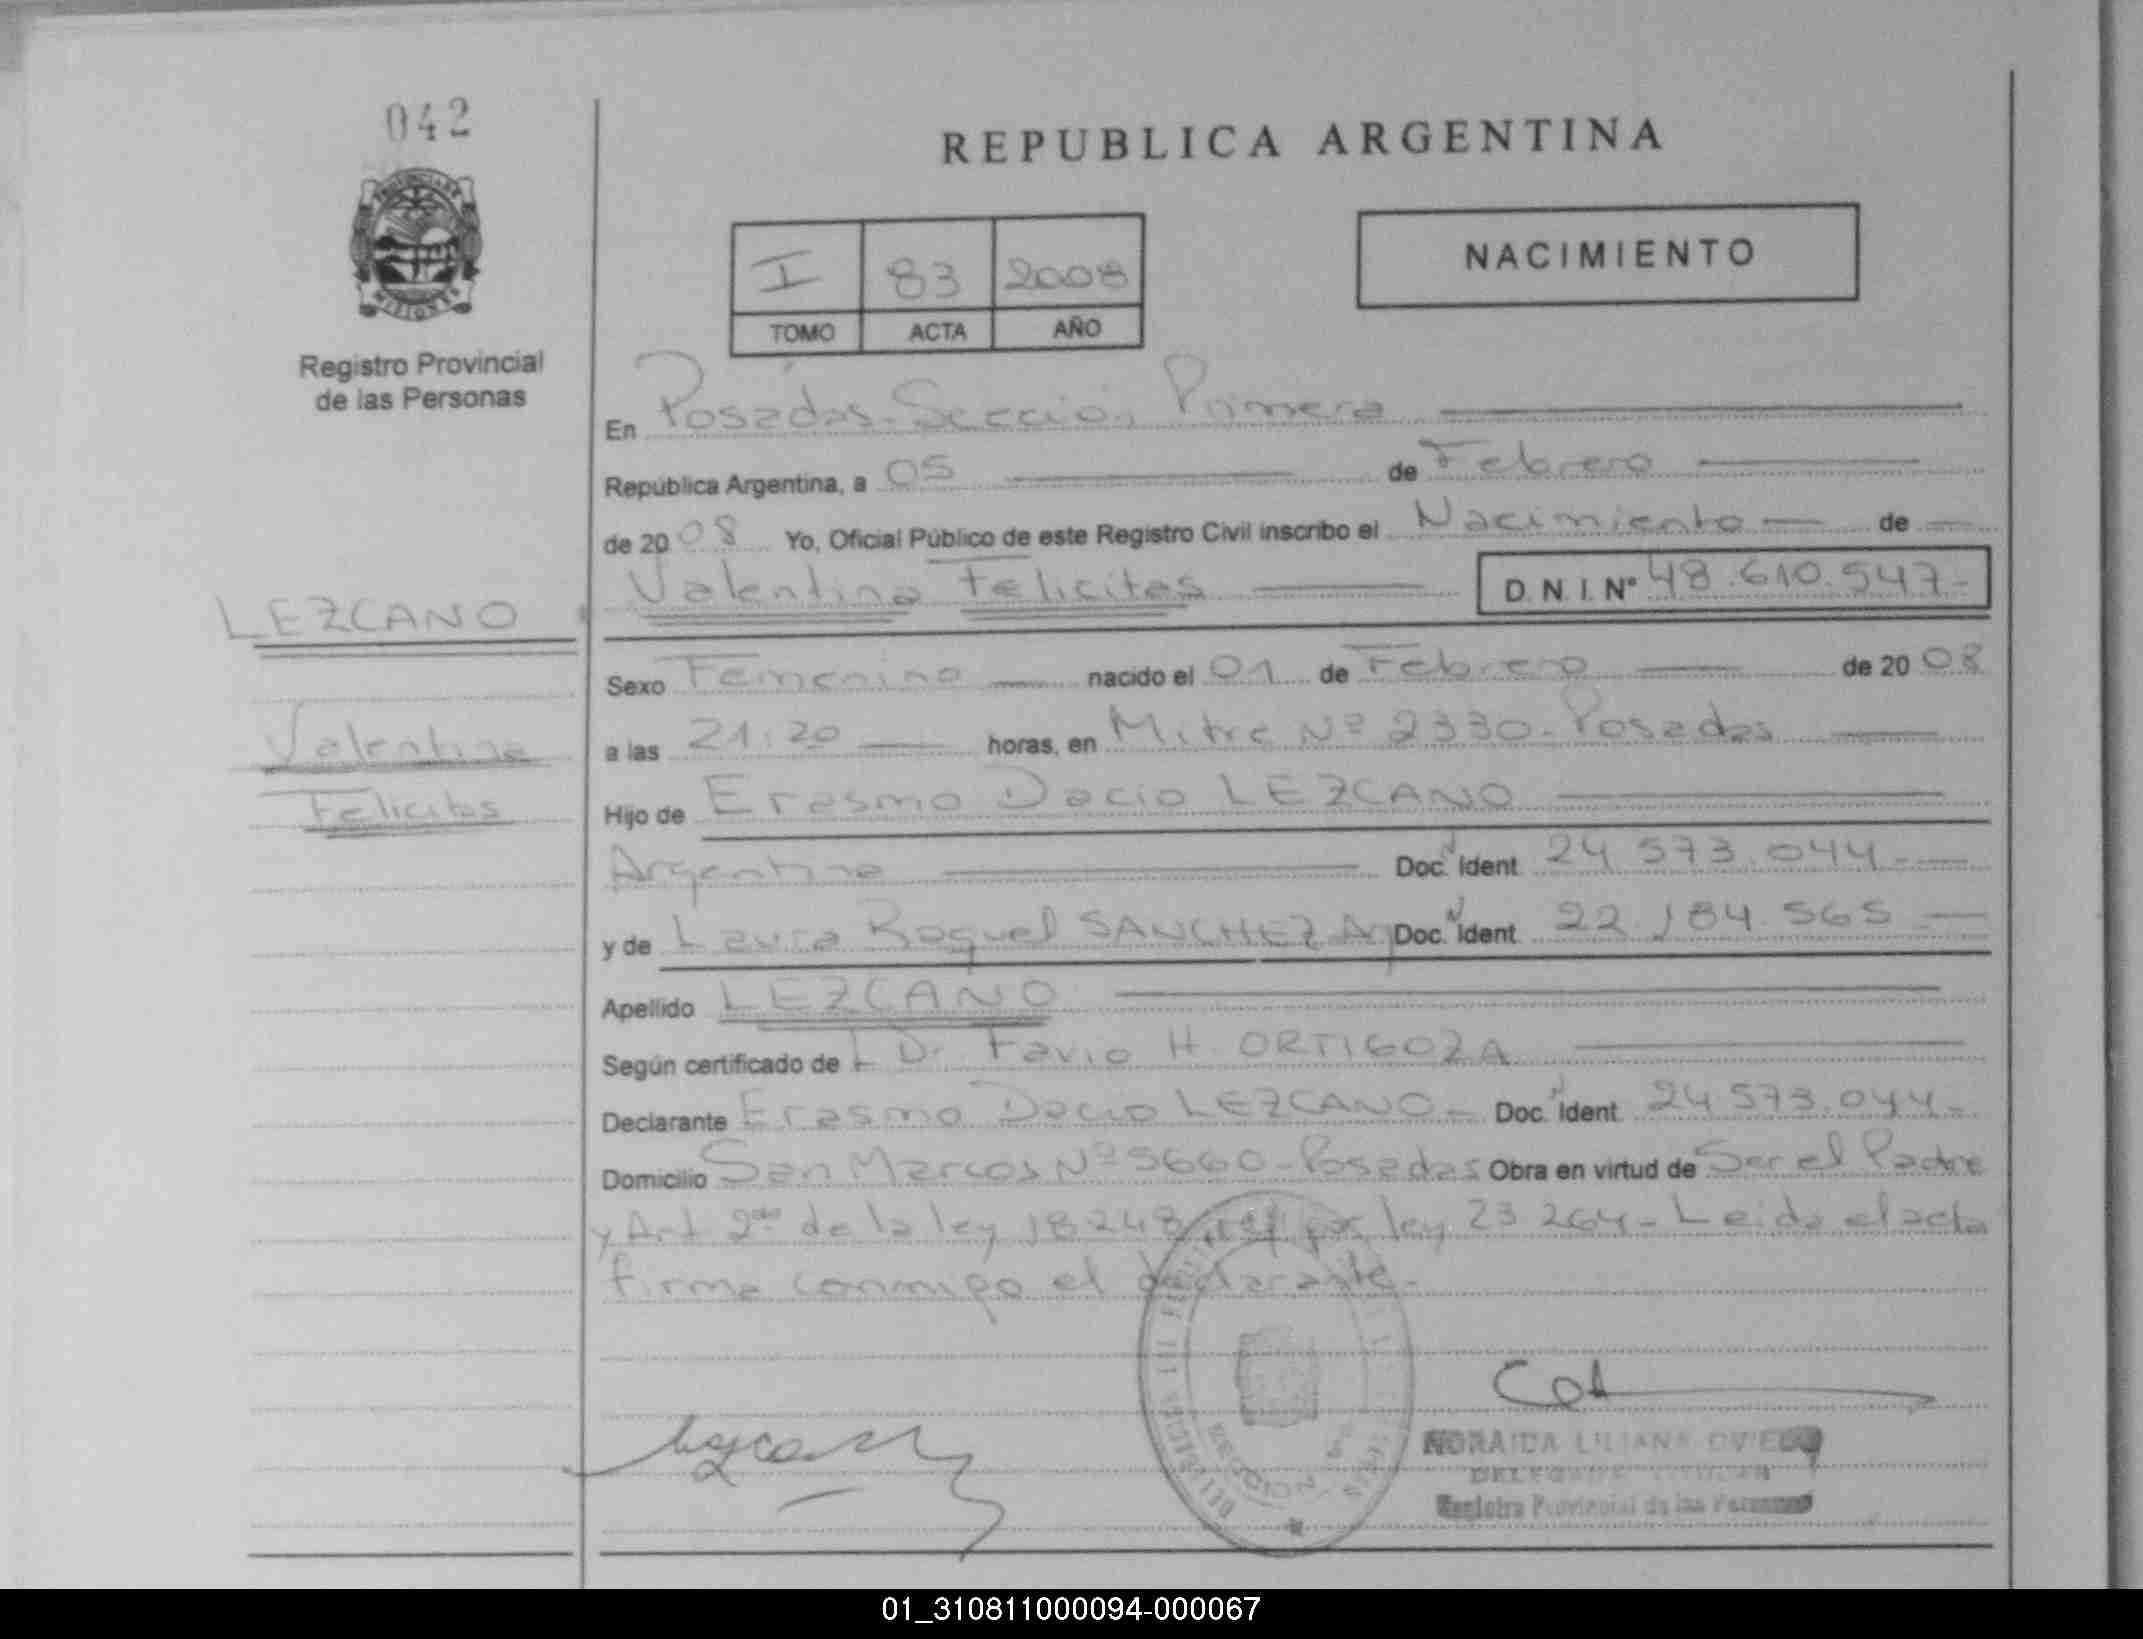 042
REPUBLICA ARGENTINA
PROVINCIA DE
MISIONES
Registro Provincial
de las Personas
I 83 2008
TOMO ACTA AÑO
NACIMIENTO
En Posadas - Sección Primera
República Argentina, a 05 de Febrero
de 2008 Yo, Oficial Público de este Registro Civil inscribo el Nacimiento de
LEZCANO
Valentina Felicitas D.N.I. Nº 48.610.547-
Valentina
Felicitas
Sexo Femenino nacido el 01 de Febrero de 2008
a las 21:20 horas, en Mitre Nº 2330 - Posadas
Hijo de Erasmo Dacio LEZCANO
Argentina Doc. Ident 24 573.044-
y de Laura Raquel SANCHEZ Arg Doc. Ident 22.184.565
Apellido LEZCANO
Según certificado de Dr. Favio H. ORTIGOZA
Declarante Erasmo Dacio LEZCANO - Doc. Ident 24 573.044-
Domicilio San Marcos Nº 5660 - Posadas Obra en virtud de Ser el Padre
y Art 2do de la ley 18248 ref por ley 23 264 - Leida el acta
firma conmigo el declarante-
NORAIDA LILIANA OVIEDO
Registro Provincial de las Personas
01_310811000094-000067